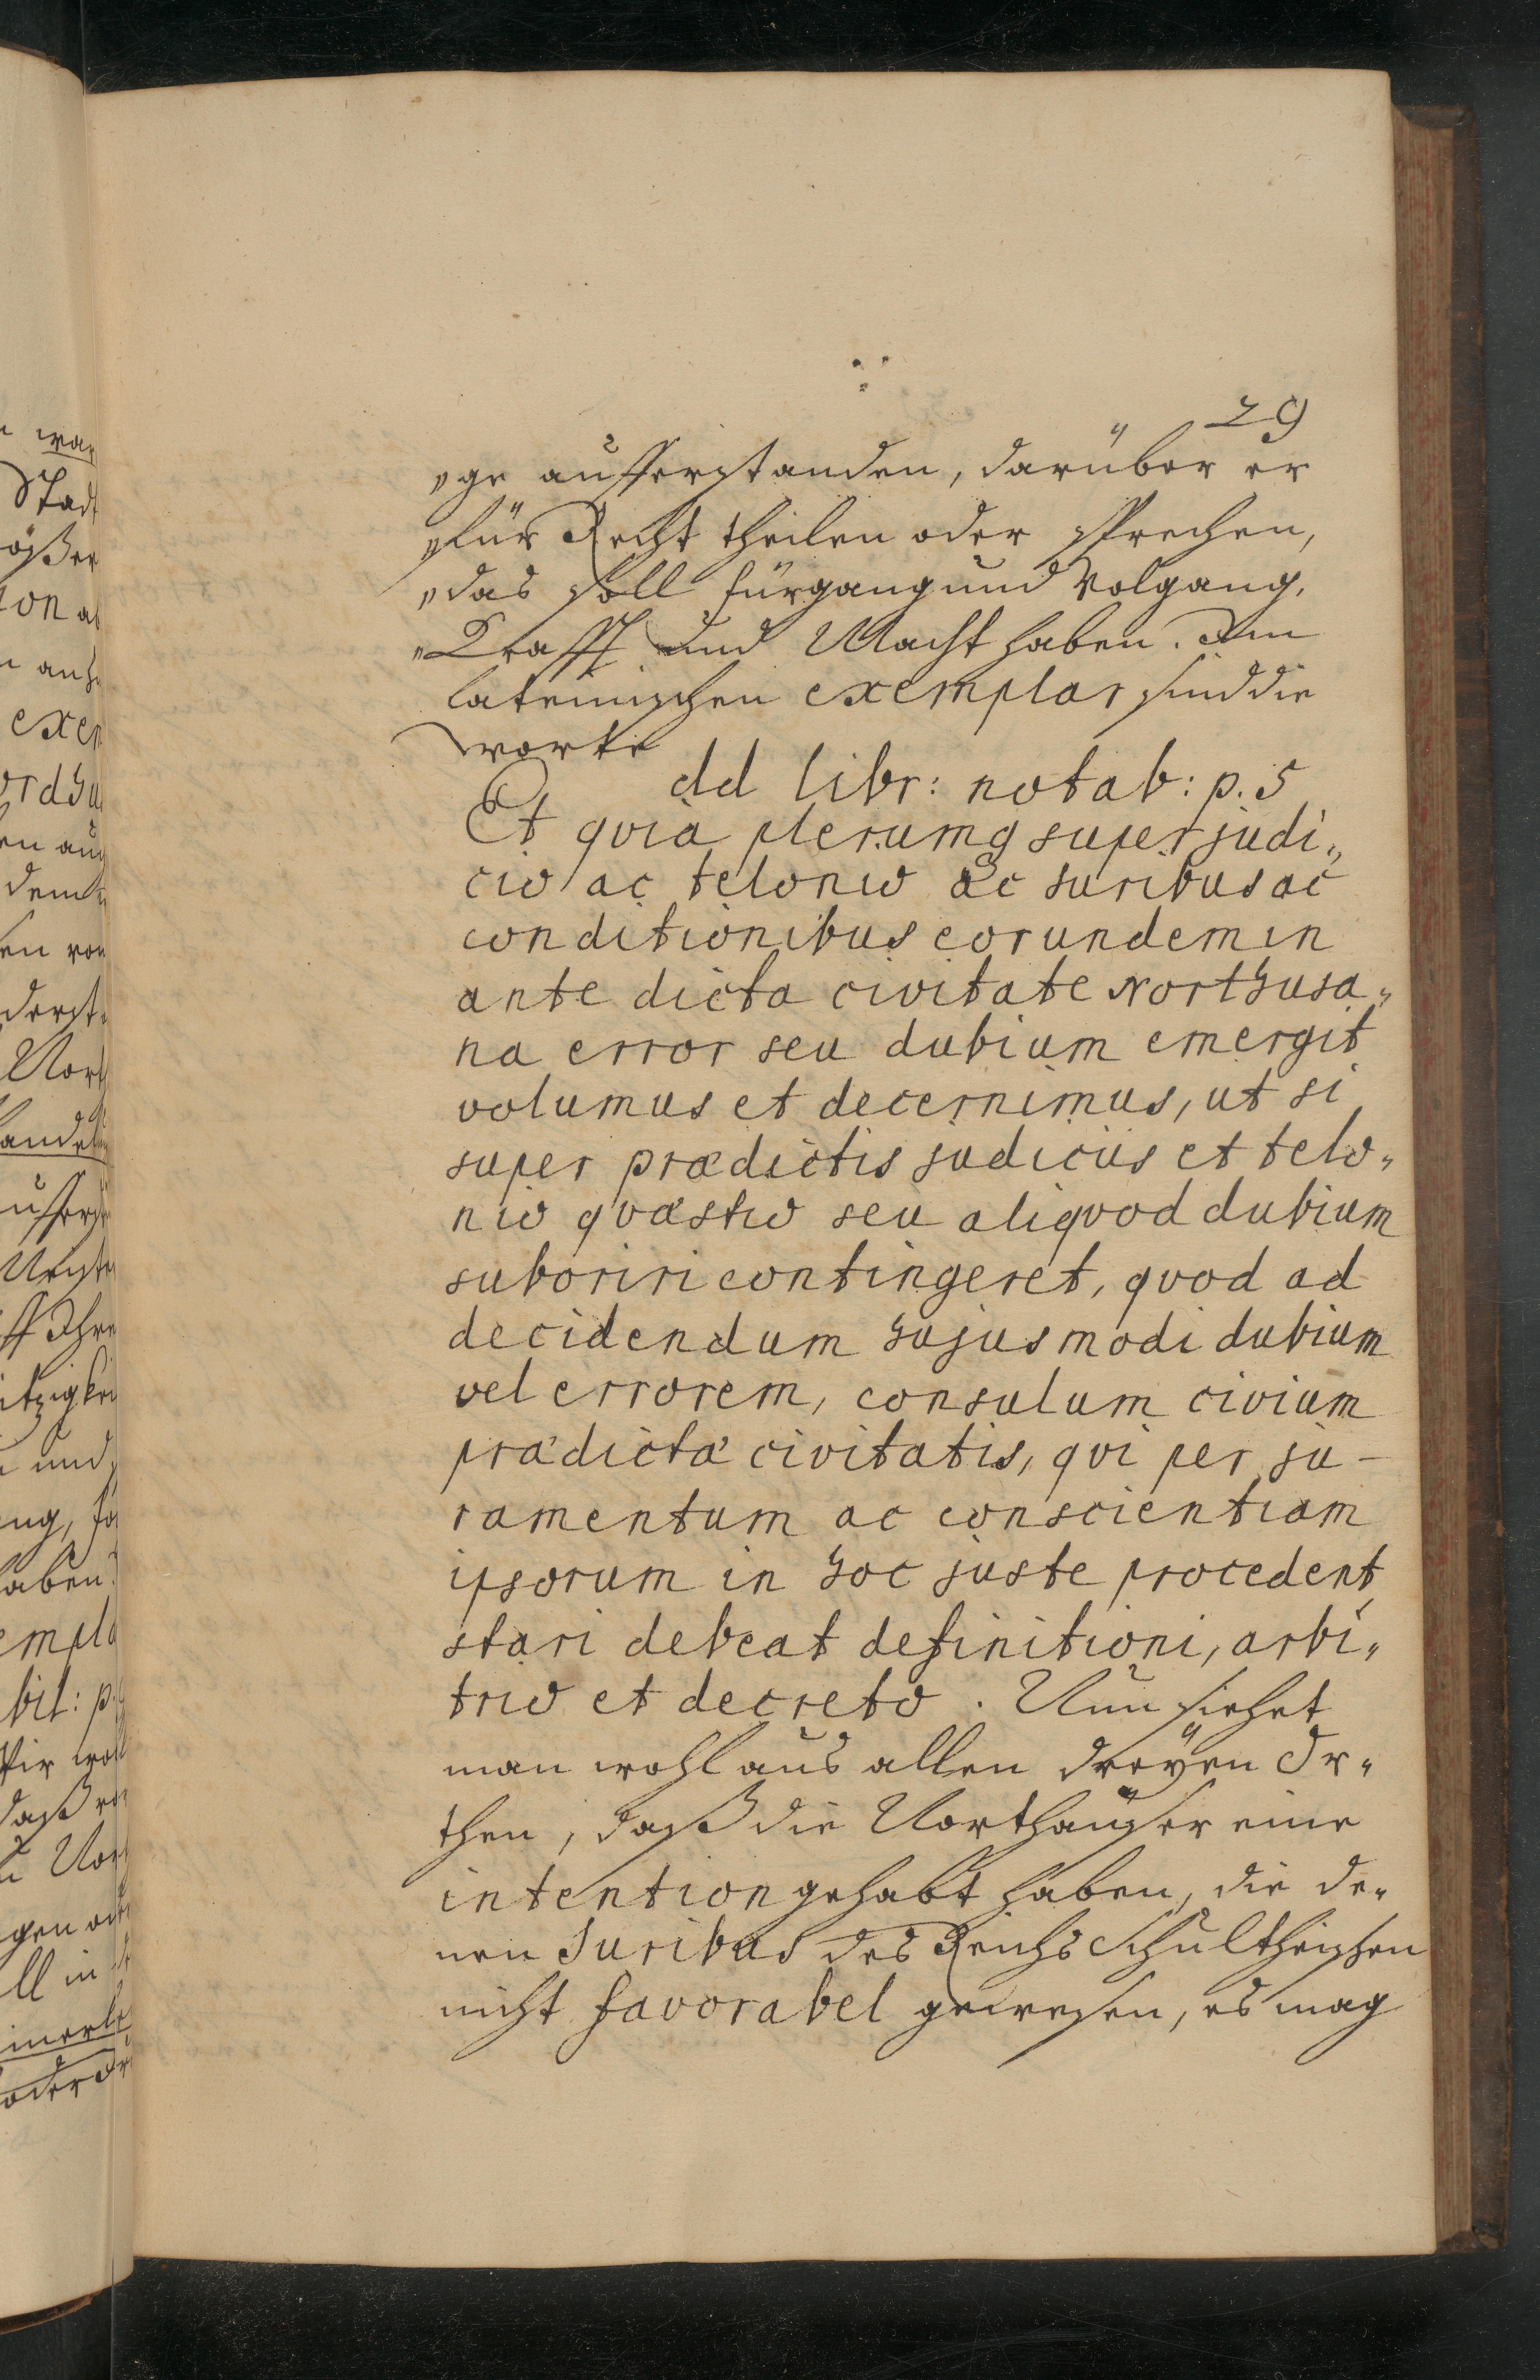 29
„ge aufferstanden, darüber er
„für Recht theilen oder sprechen,
„das soll fürgang und Volgang,
„Krafft und Macht haben. Im
lateinischen exemplar sind die
worte
dd libr: notab: p. 5
Et qvia plerumq super judi„
cio ac telonio ac Juribus ac
conditionibus eorundem in
ante dicta civitate Northusa„
na error seu dubium emergit
volumus et decernimus, ut si
super prædictis judiciis et telo„
nio qvæstio seu aliqvod dubium
suboriri contingeret, qvod ad
decidendum hujusmodi dubium
vel errorem, consulum civium
prædictæ civitatis, qvi per ju-
ramentum ac conscientiam
ipsorum in hoc juste procedent
stari debeat definitioni, arbi„
trio et decreto. Nun siehet
man wohl aus allen dreÿen Or„
then, daß die Northäuser eine
intention gehabt haben, die de„
nen Juribus des Reichs Schultheissen
nicht favorabel gewesen, es mag